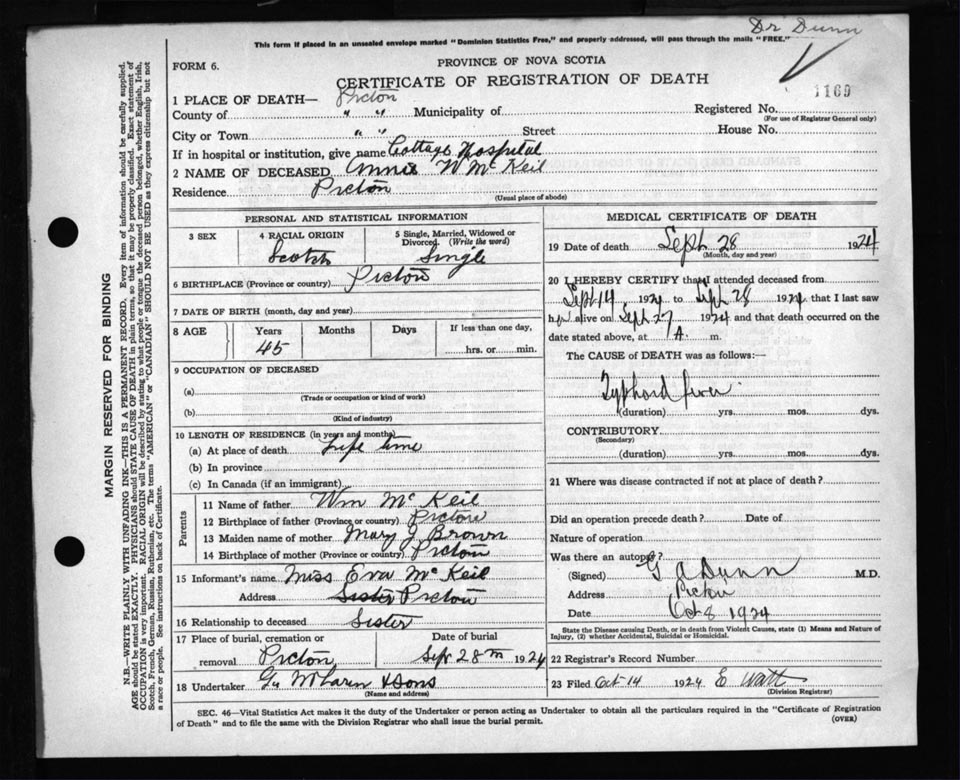 Dr Dunn
This form if placed in an unsealed envelope marked "Dominion Statistics Free," and properly addressed, will pass through the mails "FREE."
FORM 6.
PROVINCE OF NOVA SCOTIA
CERTIFICATE OF REGISTRATION OF DEATH
1169
1 PLACE OF DEATH— Pictou
County of " " Municipality of Registered No.
(For use of Registrar General only)
City or Town " " Street House No.
If in hospital or institution, give name Cottage Hospital
2 NAME OF DECEASED Annie W McKeil
Residence Pictou
(Usual place of abode)
PERSONAL AND STATISTICAL INFORMATION
3 SEX
4 RACIAL ORIGIN
Scotch
5 Single, Married, Widowed or Divorced. (Write the word)
Single
6 BIRTHPLACE (Province or country) Pictou
7 DATE OF BIRTH (month, day and year)
8 AGE
Years Months Days If less than one day,
45 hrs. or min.
9 OCCUPATION OF DECEASED
(a)
(Trade or occupation or kind of work)
(b)
(Kind of industry)
10 LENGTH OF RESIDENCE (in years and months)
(a) At place of death life time
(b) In province
(c) In Canada (if an immigrant)
Parents
11 Name of father Wm McKeil
12 Birthplace of father (Province or country) Pictou
13 Maiden name of mother Mary J Brown
14 Birthplace of mother (Province or country) Pictou
15 Informant's name Miss Eva McKeil
Address Sister Pictou
16 Relationship to deceased Sister
17 Place of burial, cremation or removal Pictou
Date of burial
Sept 28th 1924
18 Undertaker McLaren & Sons
(Name and address)
MEDICAL CERTIFICATE OF DEATH
19 Date of death Sept 28 1924
(Month, day and year)
20 I HEREBY CERTIFY that I attended deceased from
Sept 14, 1924 to Sept 28 1924 that I last saw
her alive on Sept 27 1924 and that death occurred on the
date stated above, at A m.
The CAUSE of DEATH was as follows:—
Typhoid fever
(duration) yrs. mos. dys.
CONTRIBUTORY
(Secondary)
(duration) yrs. mos. dys.
21 Where was disease contracted if not at place of death?
Did an operation precede death? Date of
Nature of operation
Was there an autopsy?
(Signed) G A Dunn M.D.
Address Pictou
Date Oct 8 1924
State the Disease causing Death, or in death from Violent Causes, state (1) Means and Nature of
Injury, (2) whether Accidental, Suicidal or Homicidal.
22 Registrar's Record Number
23 Filed Oct 14 1924 E Watt
(Division Registrar)
SEC. 46—Vital Statistics Act makes it the duty of the Undertaker or person acting as Undertaker to obtain all the particulars required in the "Certificate of Registration
of Death" and to file the same with the Division Registrar who shall issue the burial permit.
(OVER)
MARGIN RESERVED FOR BINDING
N.B.—WRITE PLAINLY WITH UNFADING INK—THIS IS A PERMANENT RECORD. Every item of information should be carefully supplied.
AGE should be stated EXACTLY. PHYSICIANS should STATE CAUSE OF DEATH in plain terms, so that it may be properly classified. Exact statement of
OCCUPATION is very important. RACIAL ORIGIN will be described by stating to what people or tongue the deceased person belonged, whether English, Irish,
Scotch, French, German, Russian, Ruthenian, etc. The terms "AMERICAN" or "CANADIAN" SHOULD NOT BE USED as they express citizenship but not
a race or people. See instructions on back of Certificate.